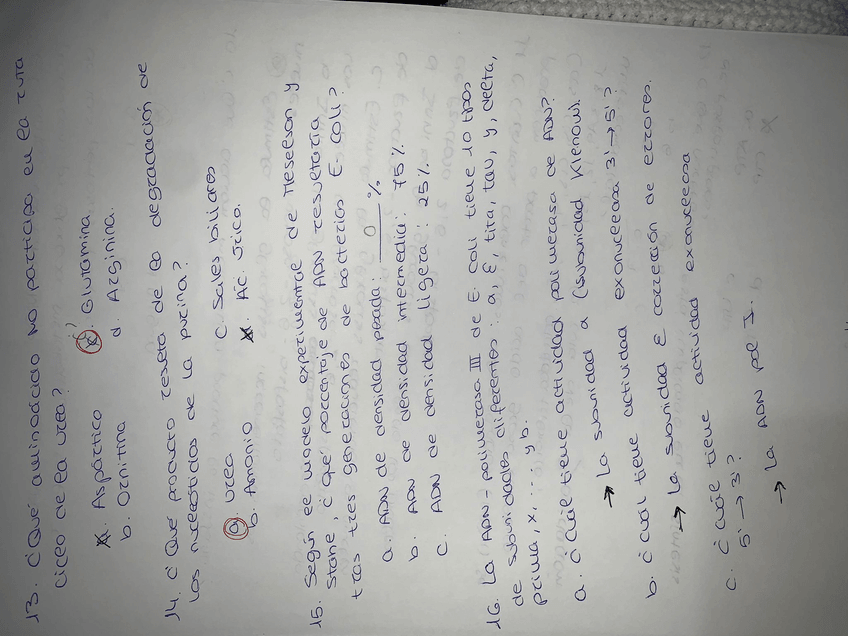 13. ¿Qué aminoácido NO participa en la ruta
ciclo de la urea?
a. Aspártico
c. Glutamina
b. Ornitina
d. Arginina.
14. ¿Qué producto resulta de la degradación de
los nucleótidos de la purina?
a. Urea
c. Sales biliares
b. Amonio
d. Ác. Úrico.
15. Según el modelo experimental de Meselson y
Stahe, ¿qué porcentaje de ADN resultaría
tras tres generaciones de bacterias E. coli?
a. ADN de densidad pesada: 0 %
b. ADN de densidad intermedia: 75 %
c. ADN de densidad ligera: 25 %
16. La ADN-polimerasa III de E. coli tiene 10 tipos
de subunidades diferentes: a, ε, tita, tau, y, delta,
prima, x, ... y b.
a. ¿Cuál tiene actividad polimerasa de ADN?
→ La subunidad a (subunidad Klenow).
b. ¿Cuál tiene actividad exonucleasa 3'→5'?
→ La subunidad ε corrección de errores.
c. ¿Cuál tiene actividad exonucleasa
5'→3'?
→ La ADN pol I.